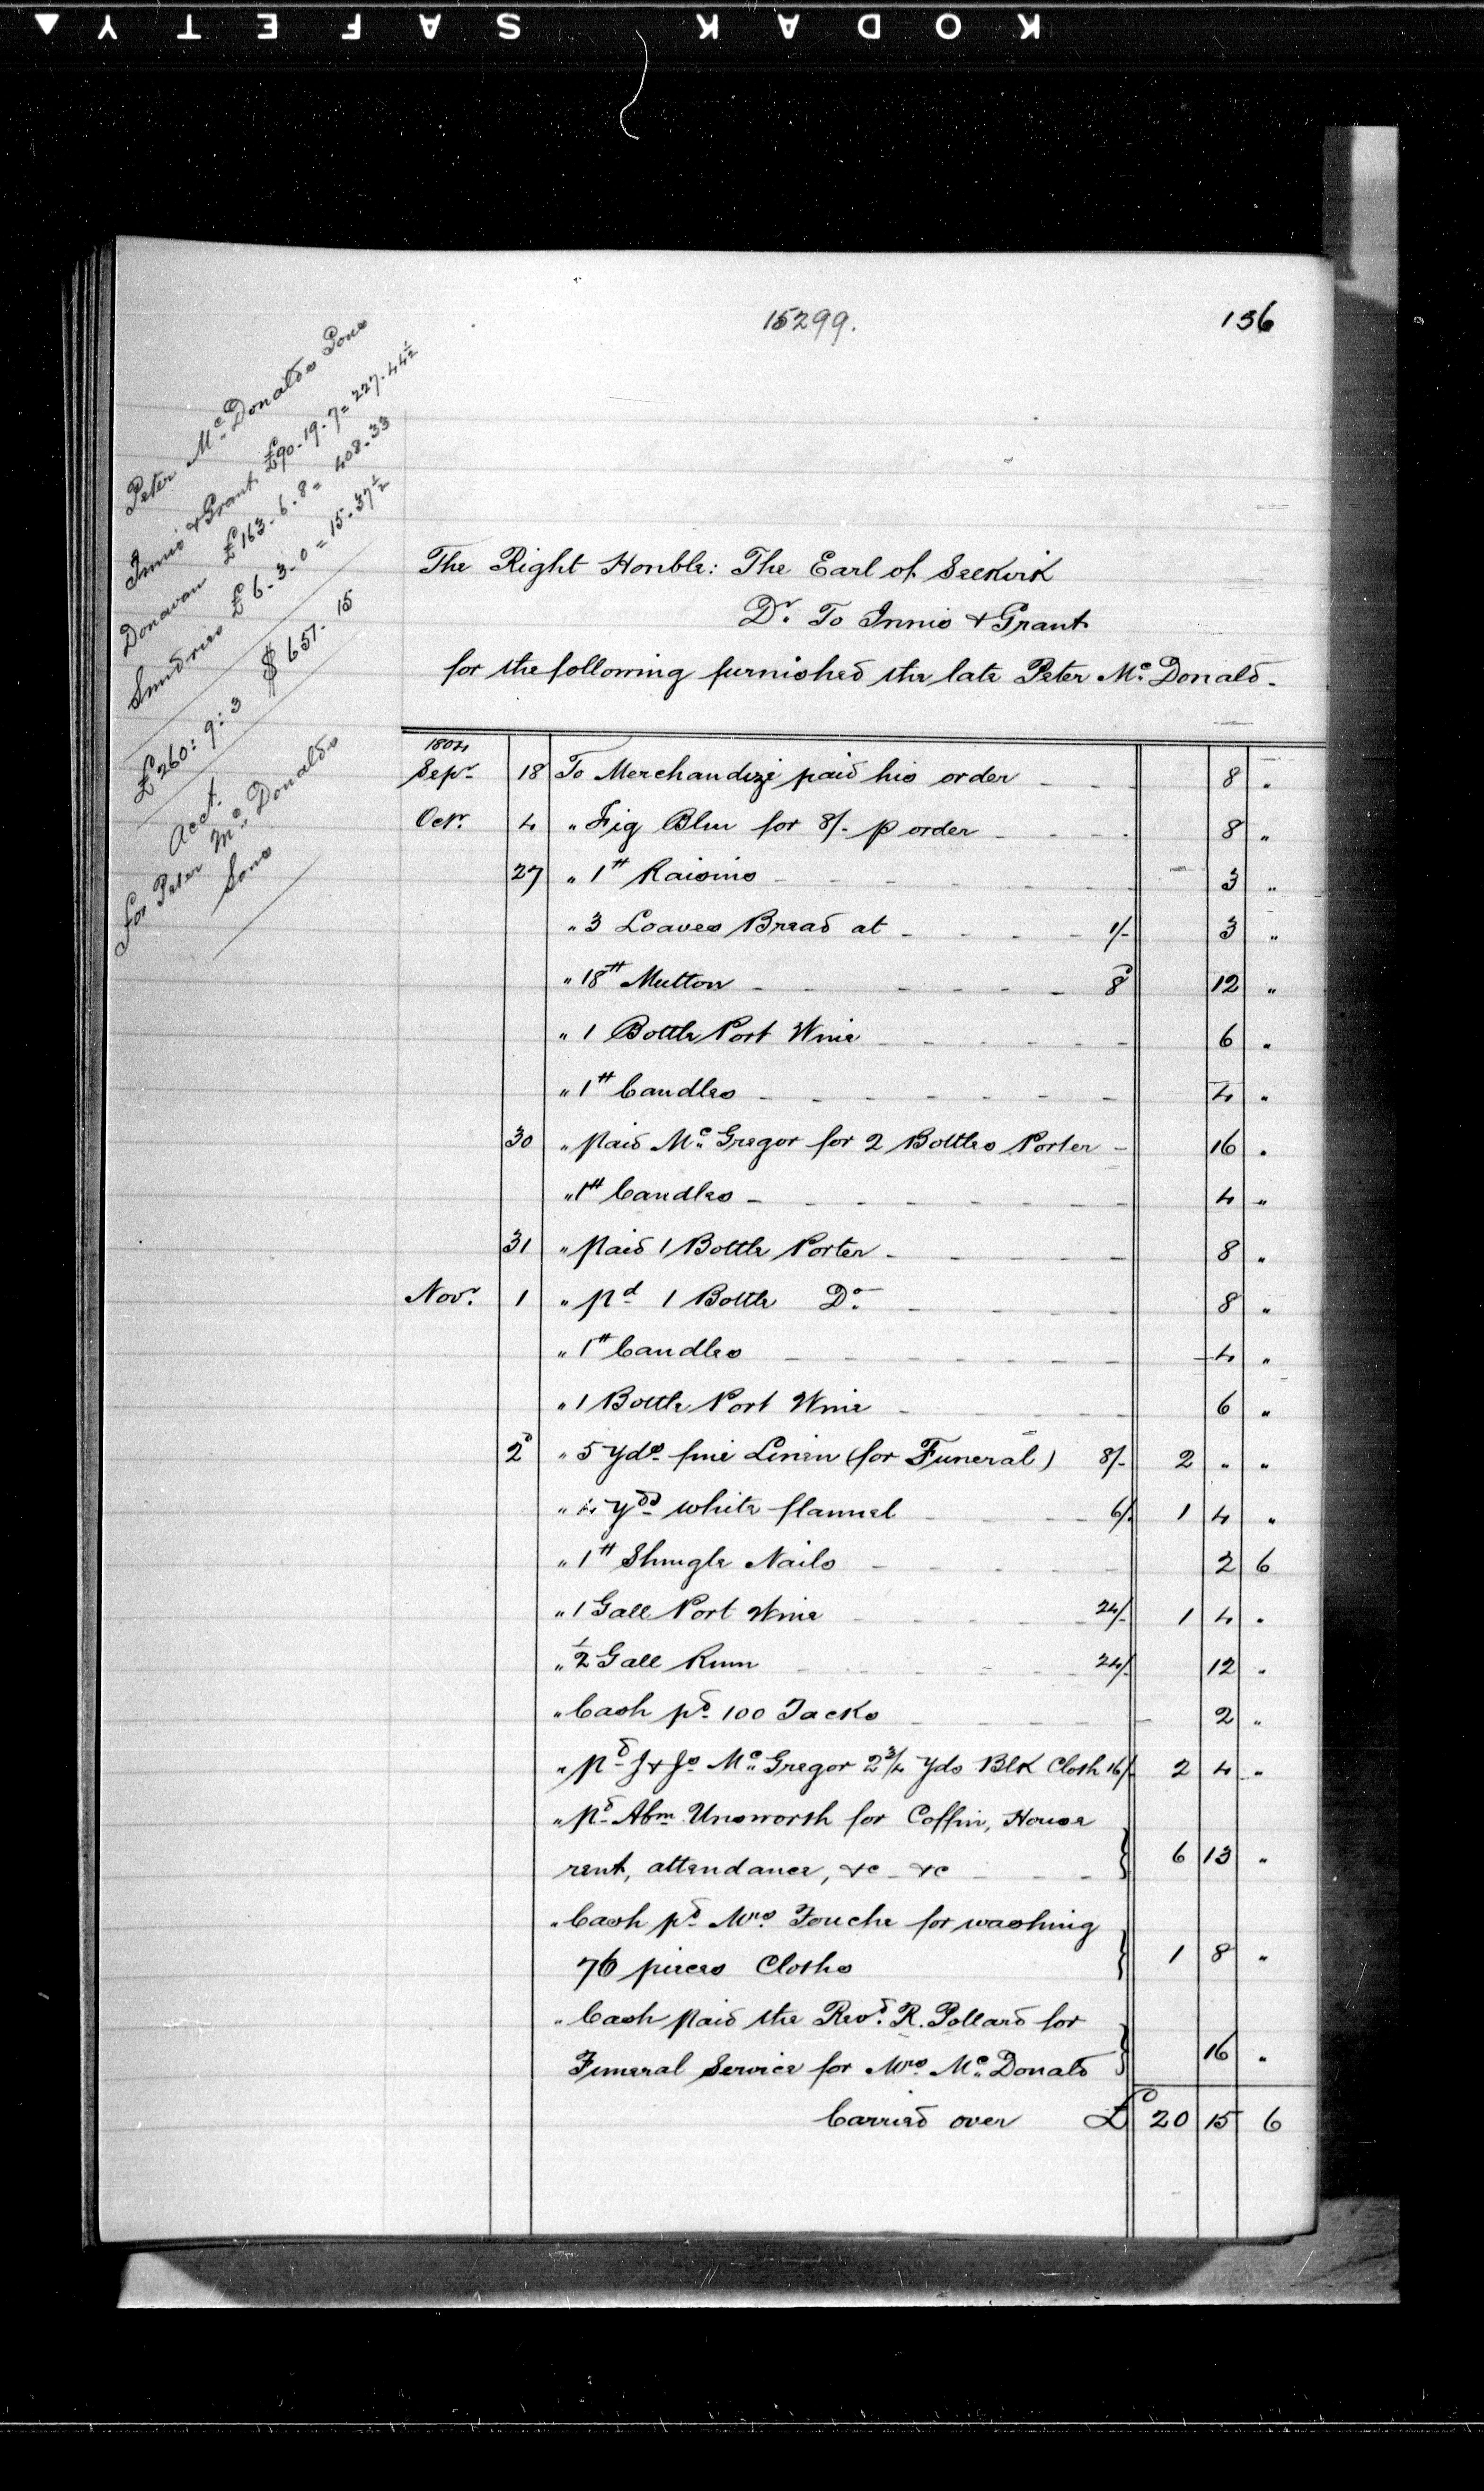 KODAK SAFETY
15299.
136
Peter Mc. Donalds Sons
Innis & Grant £90-19-7= 227.44½
Donavan £163-6-8= 408.33
Sundries £6-3-0 = 15.37½
£260:9:3 $651.15
Acct.
for Peter Mc. Donalds
Sons
The Right Honble: The Earl of Selkirk
Dr. To Innis & Grant
for the following furnished the late Peter Mc. Donald.
1804
Sepr. 18 To Merchandize paid his order - - - 8 "
Octr. 4 " Fig Blue for 8/- p order - - - - 8 "
27 " 1# Raisins - - - - - - 3 "
" 3 Loaves Bread at - - - - 1/- 3 "
" 18# Mutton - - - - - - 8d 12 "
" 1 Bottle Port Wine - - - - - 6 "
" 1# Candles - - - - - - - 4 "
30 " paid Mc. Gregor for 2 Bottles Porter - 16 "
" 1# Candles - - - - - - - 4 "
31 " paid 1 Bottle Porter - - - - - 8 "
Novr. 1 " pd 1 Bottle Do. - - - - 8 "
" 1# Candles - - - - - - - 4 "
" 1 Bottle Port Wine - - - - - 6 "
2d " 5 Yds. fine Linen (for Funeral) 8/- 2 " "
" 4 Yds white flannel - - - - 6/- 1 4 "
" 1# Shingle Nails - - - - - 2 6
" 1 Gall Port Wine - - - - 24/- 1 4 "
" ½ Gall Rum - - - - - 24/- 12 "
" Cash pd. 100 Tacks - - - - - 2 "
" pd. J & Js Mc. Gregor 2¾ Yds Blk Cloth 16/- 2 4 "
" pd. Abm Unsworth for Coffin, House
rent, attendance, &c - &c - - - } 6 13 "
" Cash pd. Mrs. Fouche for washing
76 pieces Cloths } 1 8 "
" Cash paid the Revd. R. Pollard for
Funeral Service for Mrs. Mc. Donald } 16 "
Carried over £ 20 15 6